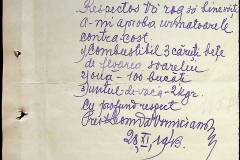 Respectos Vă rog să binevoiți
a-mi aproba urmatoarele
contra cost
1) Combustibil 3 cărute bețe
de floarea soarelui
2) oua - 100 bucăți
3) untul de vacă - 2 kgr.
Cu profund respect
28 XI 1943